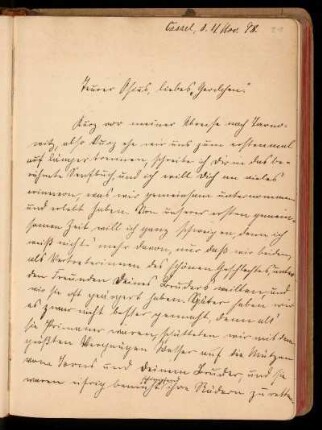 Cassel, d. 4 Nov. 98.
Teurer Schus, liebes Gretchen!
Kurz vor meiner Abreise nach Tarno-
witz, also kurz ehe wir uns zum erstenmal
auf länger trennen, schreibe ich dir in das be-
rühmte Buch und ich will dich an vieles
erinnern, was wir gemeinsam unternommen
und erlebt haben. Von unserer ersten gemein-
samen Zeit will ich ganz schweigen, denn ich
weiß nicht mehr davon, nur daß wir beiden,
als Vertreterinnen des schönen Geschlechts unter
den Freunden Deines Bruders weilten, und
wie sie oft geärgert haben. Später haben wir
es zwar nicht besser gemacht, denn als
sie Primaner waren, schütteten wir mit dem
größten Vergnügen Wasser auf die Mützen
von und Deinem Bruder, und sie
waren eifrig bemüht ihre Rädern zu retten